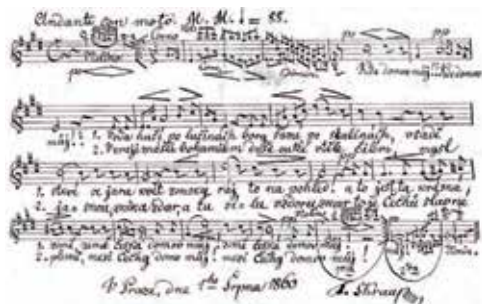 Andante con moto. M. M. ♩ = 88.
Corno
pp pp
Kde domov můj, kde domov
můj! 1. Voda hučí po lučinách, bory šumí po skalinách, v sadě
2. duše outlé v těle čilém, mysl
1. skví se jara květ zemský ráj to na pohled! a to jest ta krásná,
2. jasnou, vznik a zdar, a tu sílu vzdoru zmar, to je Čechů slavné
1. země, země česká domov můj! země česká domov můj!
2. plémě, mezi Čechy domov můj! mezi Čechy domov můj!
V Praze, dne 1ho Srpna 1860